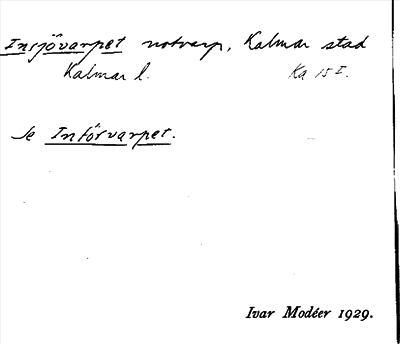 Insjövarpet notvarp, Kalmar stad
Kalmar l. Ka 15 I.
Se Införvarpet.
Ivar Modéer 1929.